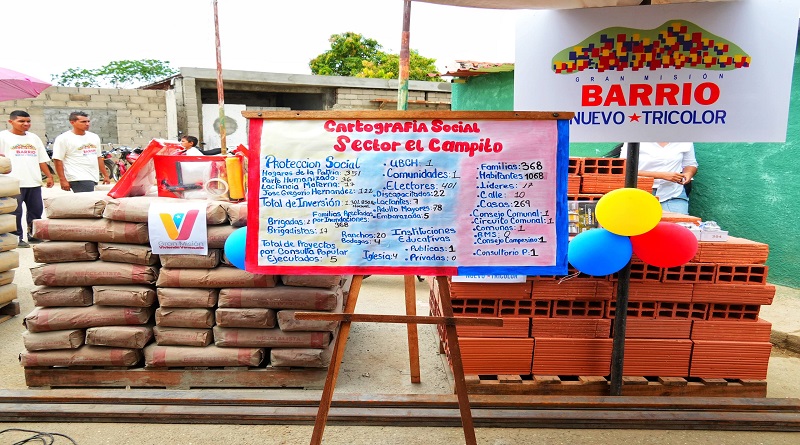 GRAN MISIÓN
BARRIO
NUEVO ★ TRICOLOR
Cartografía Social
Sector el Campito
Protección Social
Hogares de la Patria: 351
Parto Humanizado: 36
Lactancia Materna: 17
José Gregorio Hernández: 122
Total de Inversión:
Brigadas: 2
Brigadistas: 17
Familias Afectadas
por Inundaciones:
368
Total de Proyectos
por Consulta Popular
Ejecutados: 5
• UBCH: 1
• Comunidades: 1
• Electores: 401
Discapacitados: 22
Lactantes: 7
Adulto Mayores: 78
Embarazada: 5
Ranchos: 20
Bodegas: 4
Iglesia: 4
Instituciones
Educativas
• Publicas: 1
• Privadas: 0
• Familias: 368
• Habitantes: 1068
• Lideres: 17
• Calle: 10
• Casas: 269
• Consejo Comunal: 1
• Circuito Comunal: 1
• Comunas: 1
• Consejo Campesino: 1
• Consultorio P: 1
Gran Misión